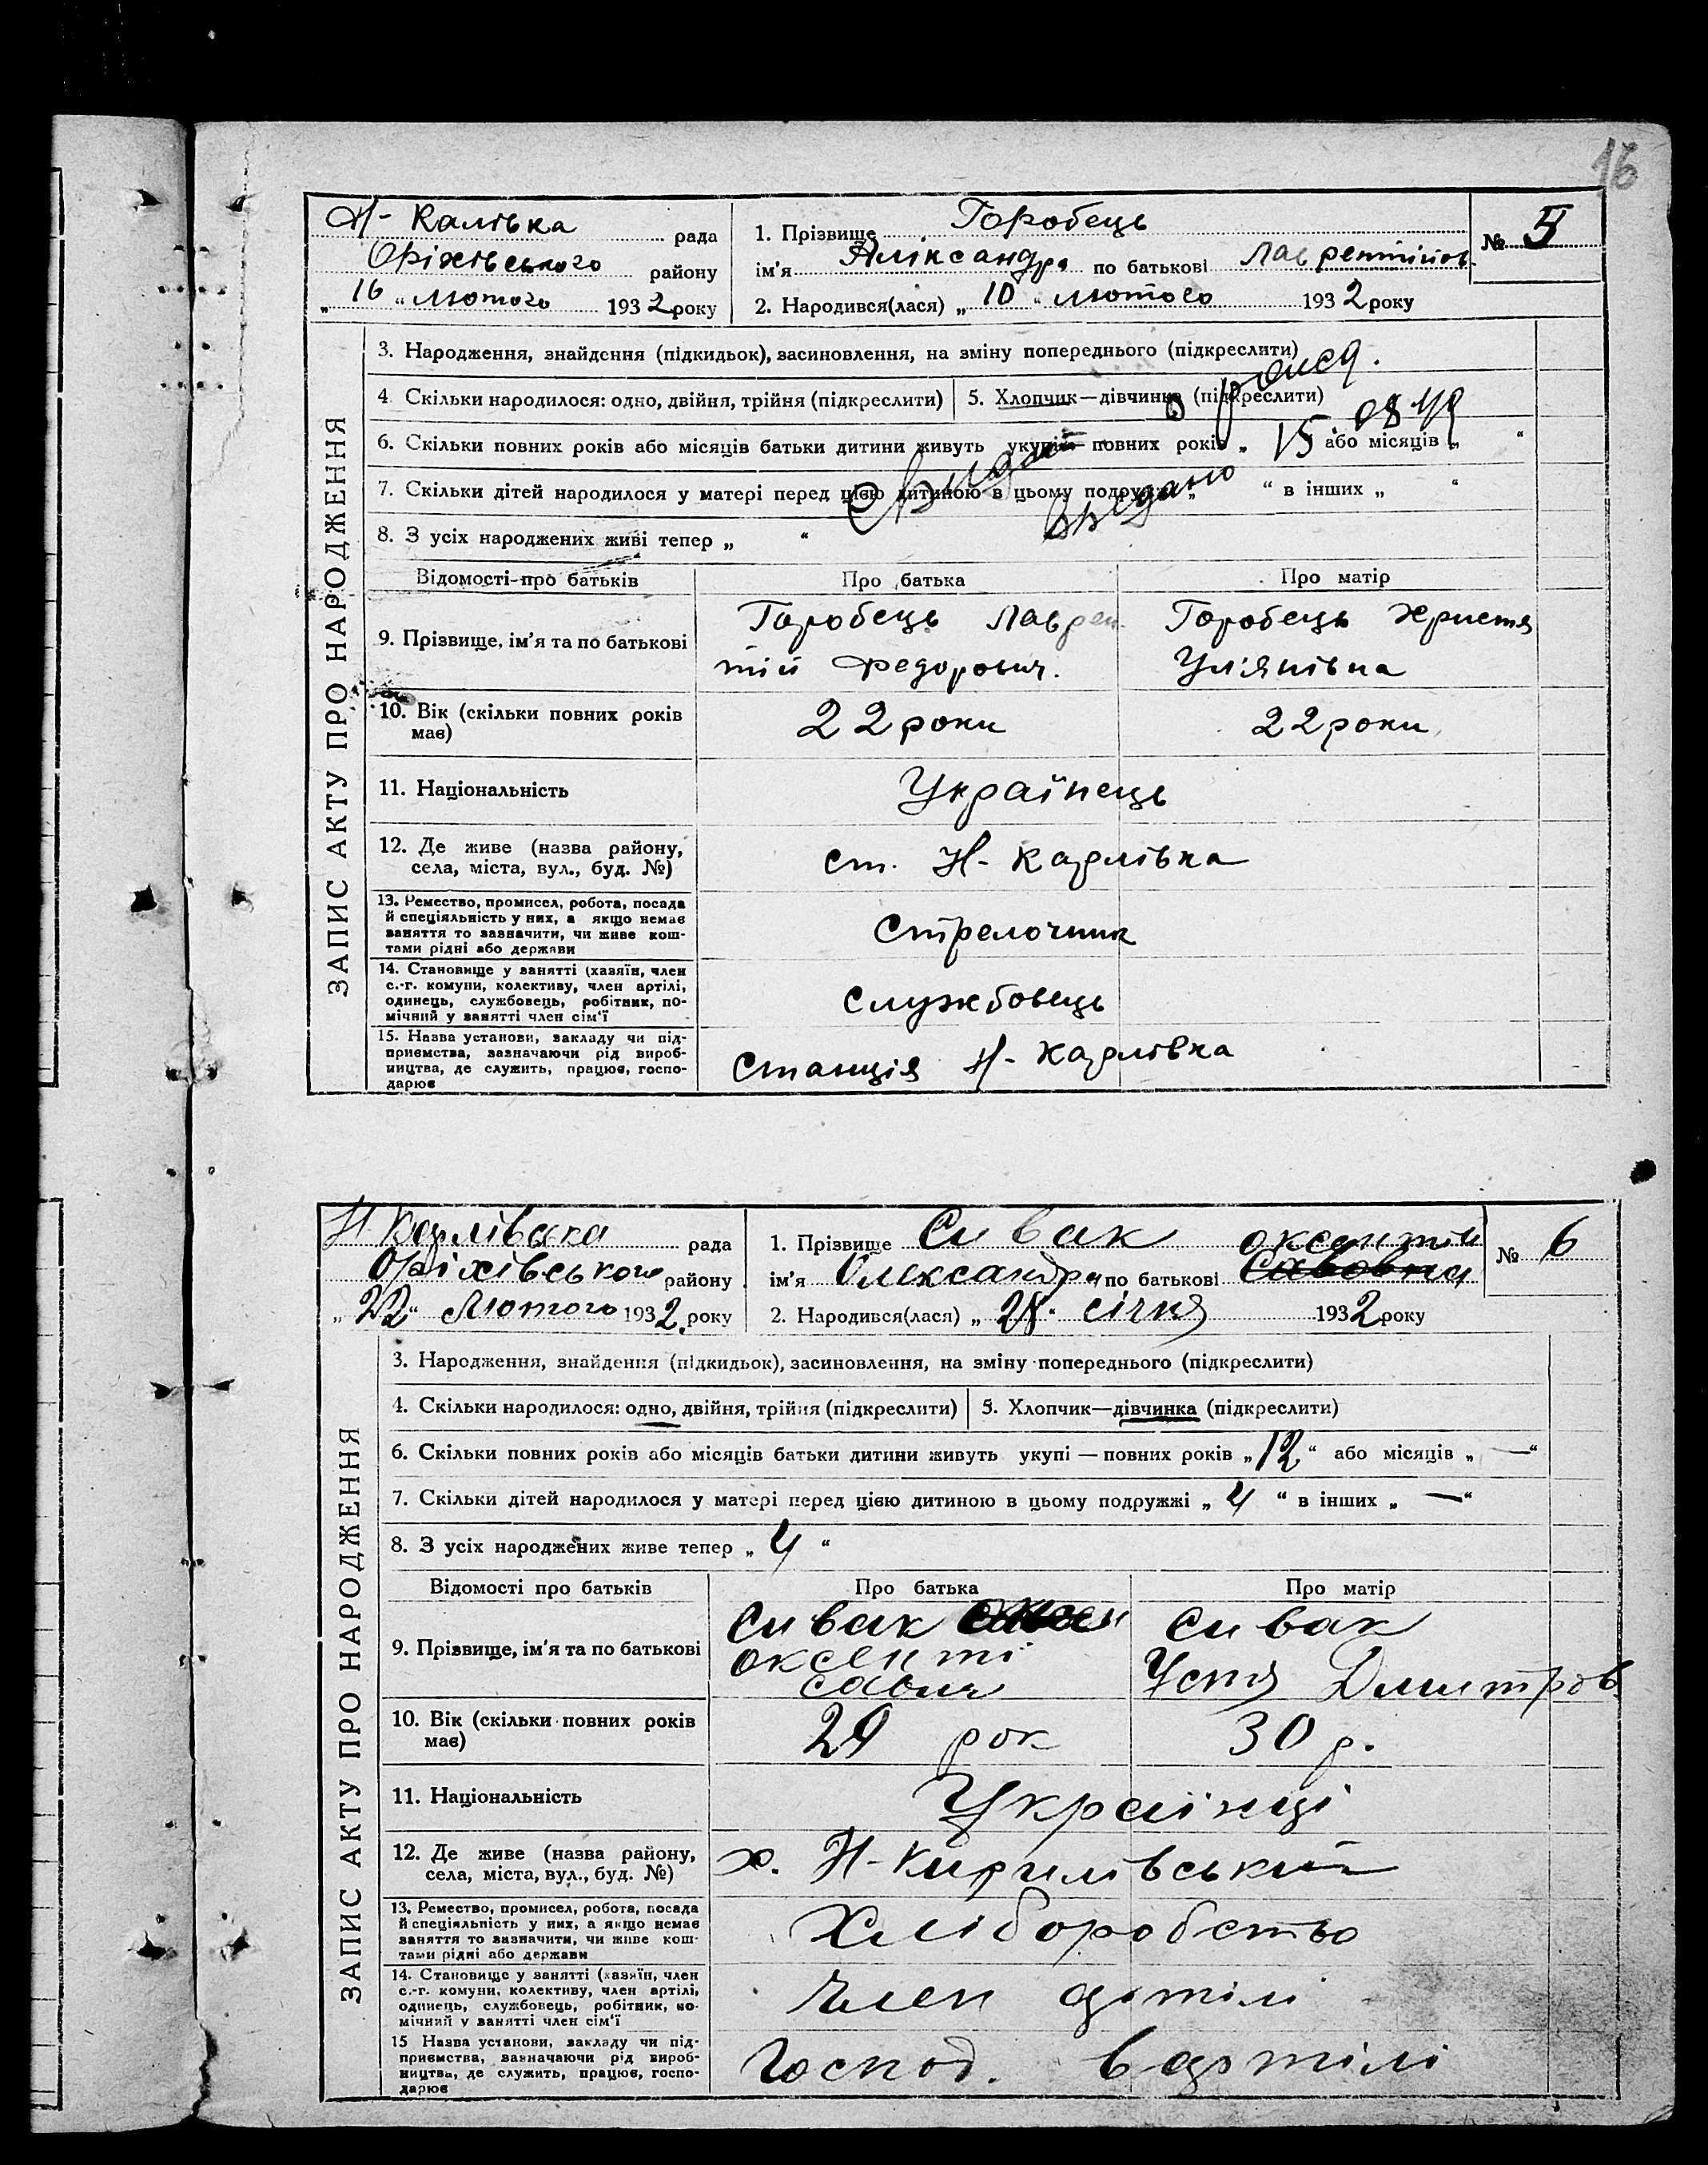 16
Н- Калівка рада
Оріхівського району
„ 16 “ Лютого 1932 року
1. Прізвище Горобець
ім'я Аліксандра по батькові Лаврентійов.
2. Народився(лася) „ 10 “ лютого 1932 року
№ 5
ЗАПИС АКТУ ПРО НАРОДЖЕННЯ
3. Народження, знайдення (підкидьок), засиновлення, на зміну попереднього (підкреслити)
4. Скільки народилося: одно, двійня, трійня (підкреслити)
5. Хлопчик—дівчинка (підкреслити)
6. Скільки повних років або місяців батьки дитини живуть укупі — повних років „ “ або місяців „ “
7. Скільки дітей народилося у матері перед цією дитиною в цьому подружжі „ “ в інших „ “
8. З усіх народжених живі тепер „ “
видано
Відомості про батьків
Про батька
Про матір
9. Прізвище, ім'я та по батькові
Горобець Лаврен-
тій Федорович.
Горобець Христя
Ул'янівна
10. Вік (скільки повних років
має)
22 роки
22 роки
11. Національність
Українець
12. Де живе (назва району,
села, міста, вул., буд. №)
ст. Н- Карлівка
13. Ремество, промисел, робота, посада
й спеціяльність у них, а якщо немає
заняття то зазначити, чи живе кош-
тами рідні або держави
Стрелочник
14. Становище у занятті (хазяїн, член
с.-г. комуни, колективу, член артілі,
одинець, службовець, робітник, по-
мічний у занятті член сім'ї
Службовець
15. Назва установи, закладу чи під-
приємства, зазначаючи рід вироб-
ництва, де служить, працює, госпо-
дарює
Станція Н- Карлівка
Н Карлівська рада
Оріхівського району
„ 22 “ Лютого 1932 року
1. Прізвище Сивак
оксентій
ім'я Олександра по батькові Савовна
2. Народився(лася) „ 28 “ січня 1932 року
№ 6
ЗАПИС АКТУ ПРО НАРОДЖЕННЯ
3. Народження, знайдення (підкидьок), засиновлення, на зміну попереднього (підкреслити)
4. Скільки народилося: одно, двійня, трійня (підкреслити)
5. Хлопчик—дівчинка (підкреслити)
6. Скільки повних років або місяців батьки дитини живуть укупі — повних років „ 12 “ або місяців „ — “
7. Скільки дітей народилося у матері перед цією дитиною в цьому подружжі „ 4 “ в інших „ — “
8. З усіх народжених живе тепер „ 4 “
Відомості про батьків
Про батька
Про матір
9. Прізвище, ім'я та по батькові
Сивак
оксенті
Савич
Сивак
Устя Дмитров.
10. Вік (скільки повних років
має)
29 рок
30 р.
11. Національність
Українці
12. Де живе (назва району,
села, міста, вул., буд. №)
х. Н-Кирилівський
13. Ремество, промисел, робота, посада
й спеціяльність у них, а якщо немає
заняття то зазначити, чи живе кош-
тами рідні або держави
Хліборобство
14. Становище у занятті (хазяїн, член
с.-г. комуни, колективу, член артілі,
одинець, службовець, робітник, по-
мічний у занятті член сім'ї
Член артілі
15 Назва установи, закладу чи під-
приємства, зазначаючи рід вироб-
ництва, де служить, працює, госпо-
дарює
Господ. в артілі